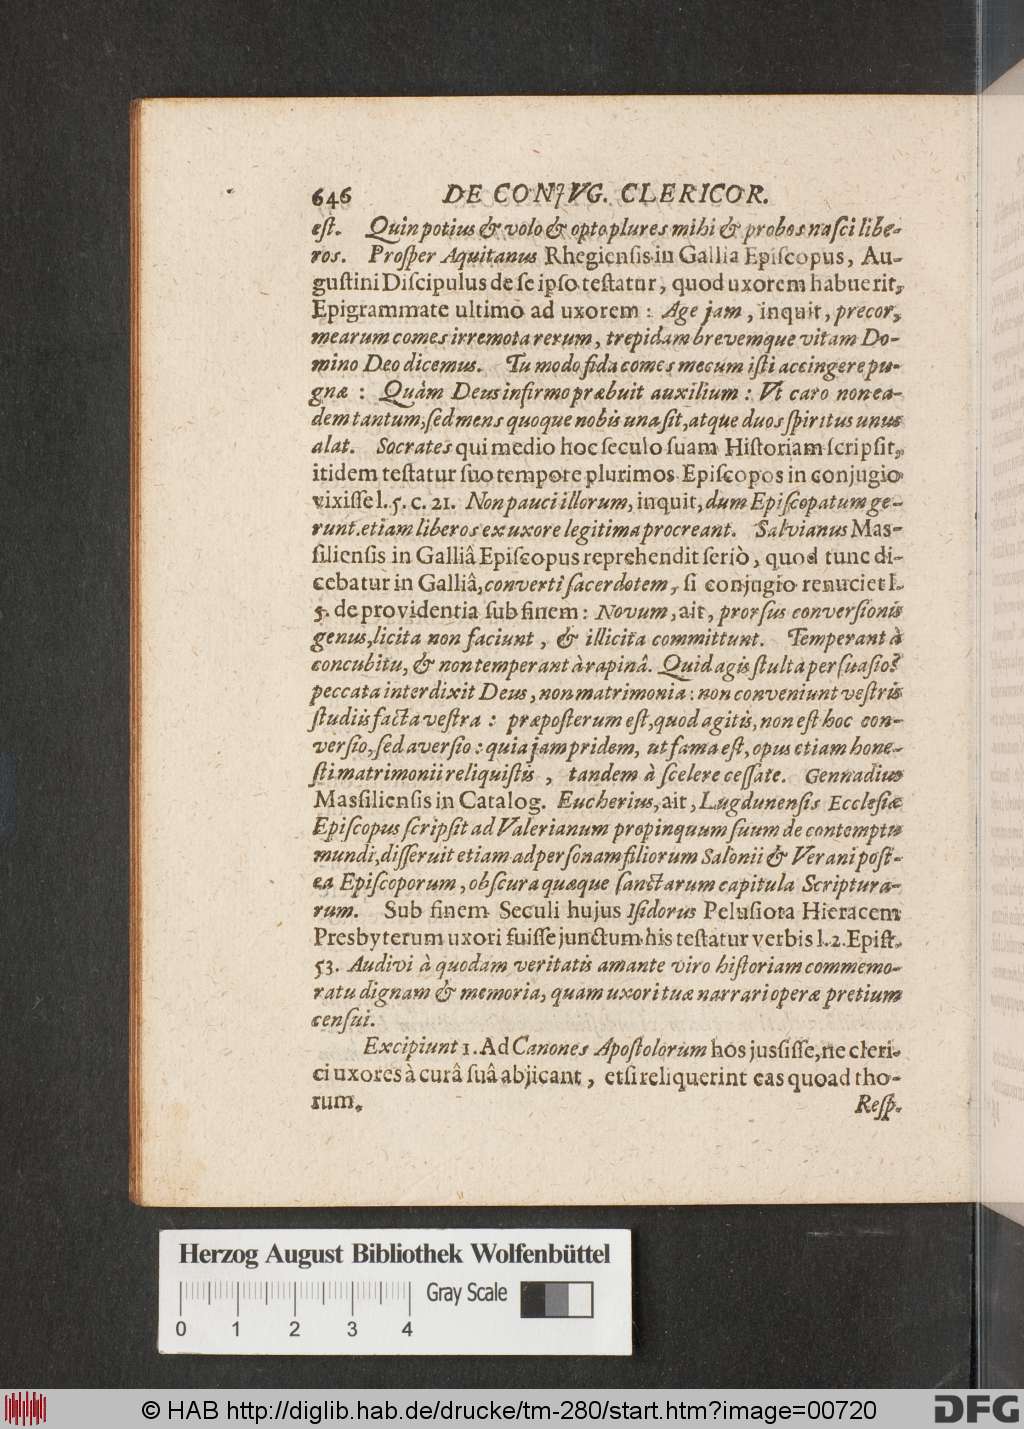 646 DE CONJVG. CLERICOR.
eſt. Quin potius & volo & opto plures mihi & probos naſci libe-
ros. Proſper Aquitanus Rhegienſis in Gallia Epiſcopus, Au-
guſtini Diſcipulus de ſe ipſo teſtatur, quod uxorem habuerit,
Epigrammate ultimo ad uxorem: Age jam, inquit, precor,
mearum comes irremota rerum, trepidam brevemque vitam Do-
mino Deo dicemus. Tu modo fida comes mecum iſti accingere pu-
gnæ: Quàm Deus infirmo præbuit auxilium: Ut caro non ea-
dem tantum, ſed mens quoque nobis una ſit, atque duos ſpiritus unus
alat. Socrates qui medio hoc ſeculo ſuam Hiſtoriam ſcripſit,
itidem teſtatur ſuo tempore plurimos Epiſcopos in conjugio
vixiſſe l. 5. c. 21. Non pauci illorum, inquit, dum Epiſcopatum ge-
runt. etiam liberos ex uxore legitima procreant. Salvianus Mas-
ſilienſis in Galliâ Epiſcopus reprehendit ſeriò, quod tunc di-
cebatur in Galliâ, converti ſacerdotem, ſi conjugio renuciet l.
5. de providentia ſub finem: Novum, ait, prorſus converſionis
genus, licita non faciunt, & illicita committunt. Temperant à
concubitu, & non temperant à rapinâ. Quid agis ſtulta perſuaſio?
peccata interdixit Deus, non matrimonia: non conveniunt veſtris
ſtudiis facta veſtra: præpoſterum eſt, quod agitis, non eſt hoc con-
verſio, ſed averſio: quia jampridem, ut fama eſt, opus etiam hone-
ſti matrimonii reliquiſtis, tandem à ſcelere ceſſate. Gennadius
Masſilienſis in Catalog. Eucherius, ait, Lugdunenſis Eccleſiæ
Epiſcopus ſcripſit ad Valerianum propinquum ſuum de contemptu
mundi, diſſeruit etiam ad perſonam filiorum Salonii & Verani poſt-
ea Epiſcoporum, obſcura quæque ſanctarum capitula Scriptura-
rum. Sub finem Seculi hujus Iſidorus Peluſiota Hieracem
Presbyterum uxori fuiſſe junctum his teſtatur verbis l. 2. Epiſt.
53. Audivi à quodam veritatis amante viro hiſtoriam commemo-
ratu dignam & memoria, quam uxori tuæ narrari operæ pretium
cenſui.
Excipiunt 1. Ad Canones Apoſtolorum hos jusſiſſe, ne cleri-
ci uxores à curâ ſuâ abjicant, etſi reliquerint eas quoad tho-
rum. Reſp.
Herzog August Bibliothek Wolfenbüttel
Gray Scale
0 1 2 3 4
© HAB http://diglib.hab.de/drucke/tm-280/start.htm?image=00720
DFG